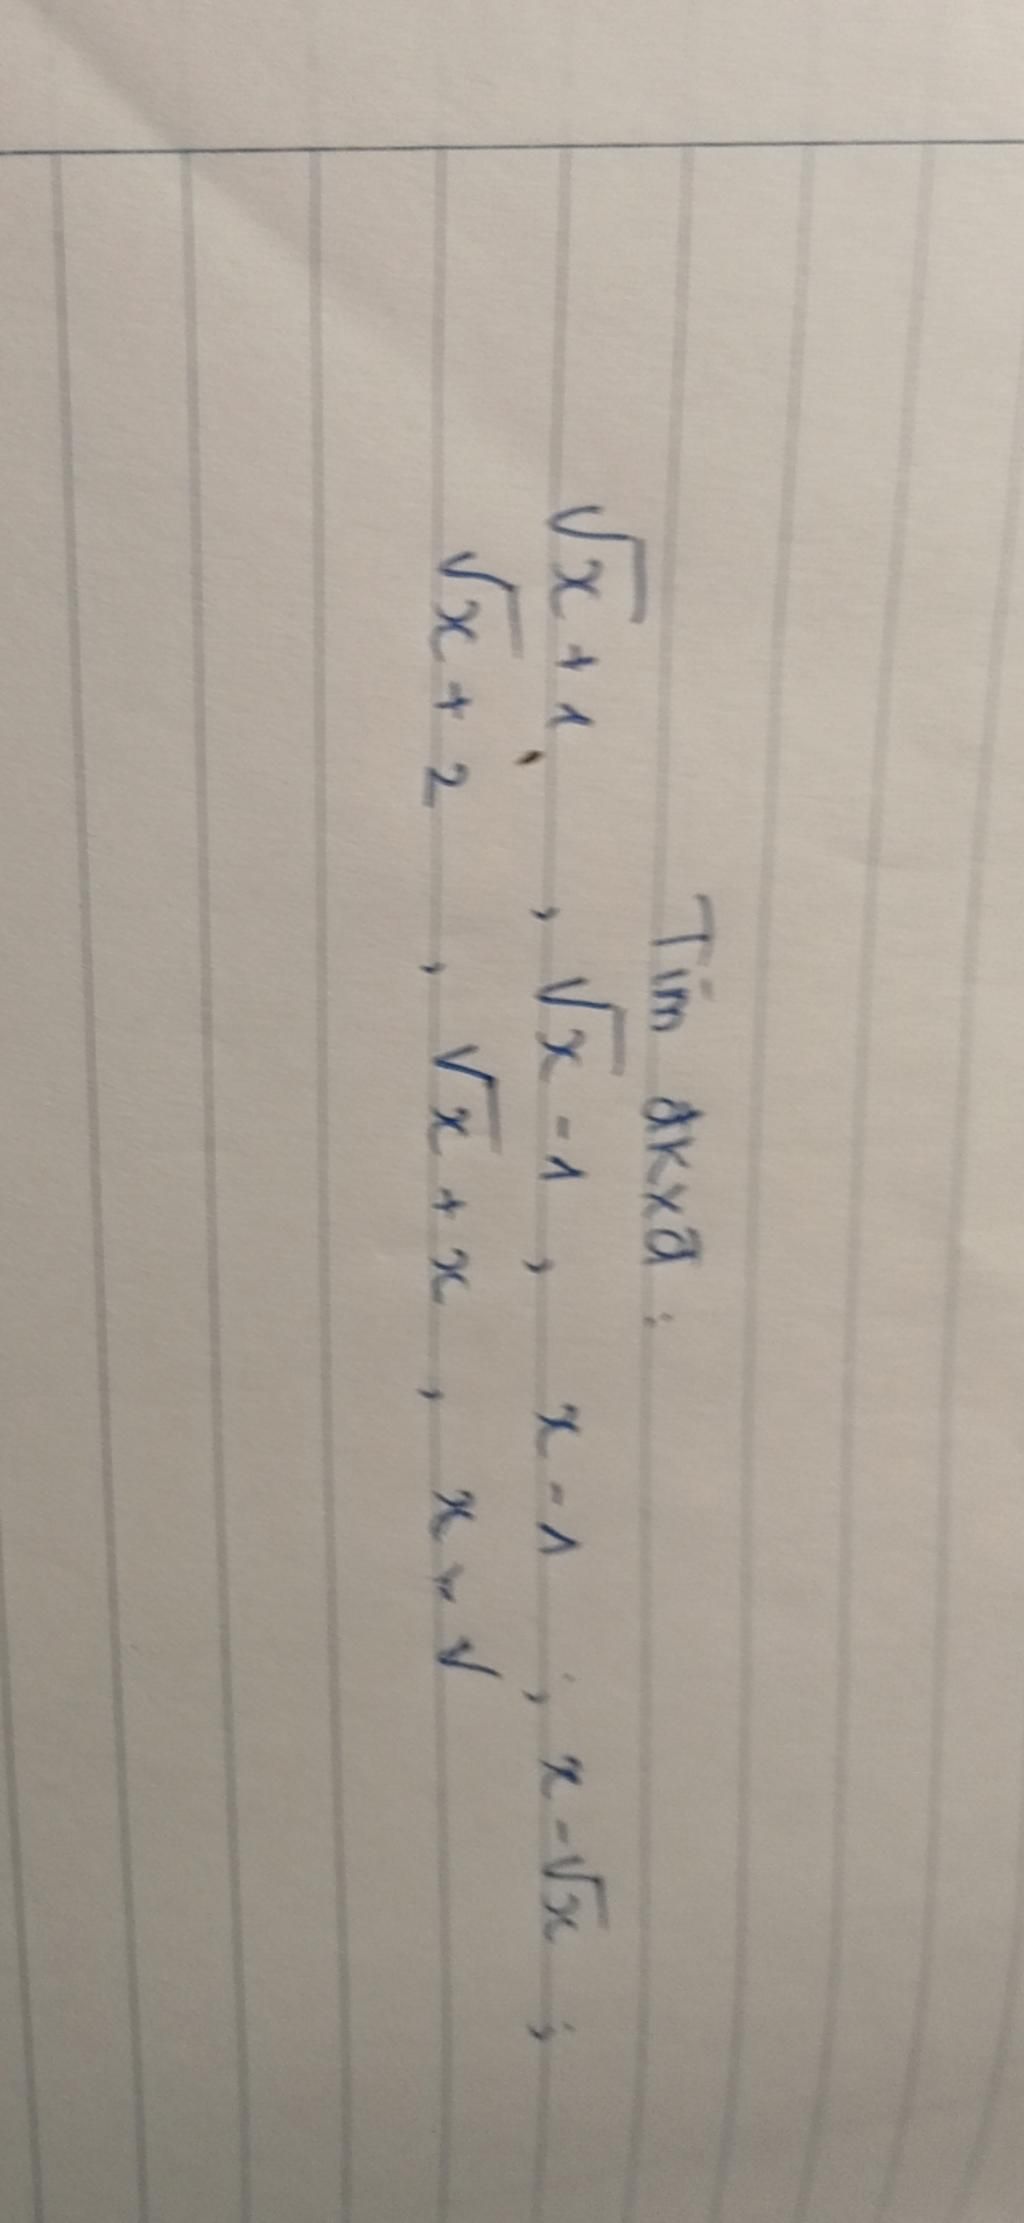 Tìm đkxđ :
√x + 1 , √x - 1 , x - 1 , x - √x ;
√x + 2 , √x + x , x - √